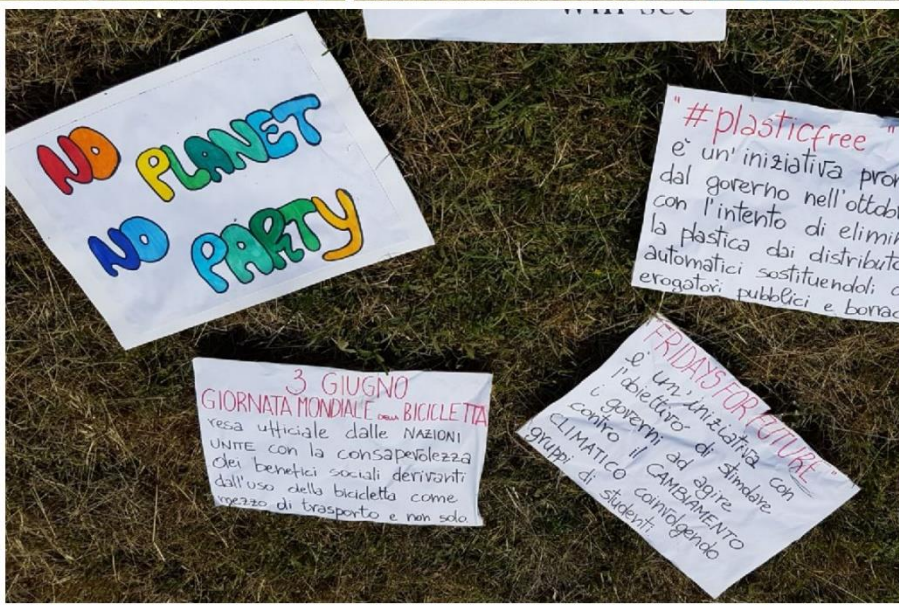 will see
NO PLANET
NO PARTY
"#plasticfree"
è un'iniziativa
dal governo nell'
con l'intento di
la plastica dai
automatici sostituendoli
erogatori pubblici e
3 GIUGNO
GIORNATA MONDIALE DELLA BICICLETTA
resa ufficiale dalle NAZIONI
UNITE con la consapevolezza
dei benefici sociali derivanti
dall'uso della bicicletta come
mezzo di trasporto e non solo.
"FRIDAYS FOR FUTURE"
è un'iniziativa con
l'obiettivo di stimolare
i governi ad agire
contro il CAMBIAMENTO
CLIMATICO coinvolgendo
gruppi di studenti